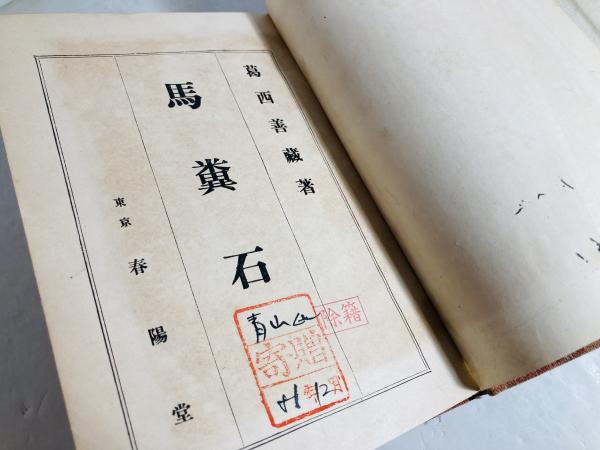 葛西善藏著
馬糞石
東京 春陽堂
除籍
青山
寄贈
12月